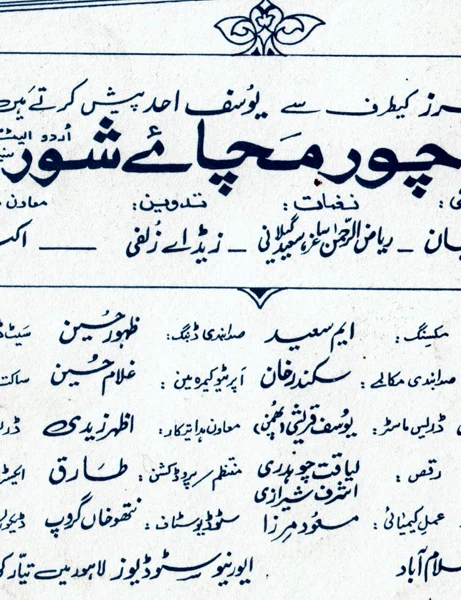 رز کیطرف سے یوسف احد پیش کرتے ہیں
چور مچائے شور اردو
نغمات: تدوین: معاون
ریاض الرحمن ساغر، سعید گیلانی ــ زیڈ اے زلفی ــــ
مکسنگ: ایم سعید صدابندی ڈبنگ: ظہور حسین
صدابندی مکالمے: سکندر خان آپریٹو کیمرہ مین: غلام حسین
ڈریس ماسٹر: یوسف قریشی (بھمن) معاون ہدایتکار: اظہر زیدی
رقص: لیاقت چوہدری منتظم پروڈکشن: طارق
اشرف شیرازی
عمل کیمیائی: مسعود مرزا سٹوڈیو سٹاف: نتھو خاں گروپ
سلام آباد ایورنیو سٹوڈیوز لاہور میں تیار کی